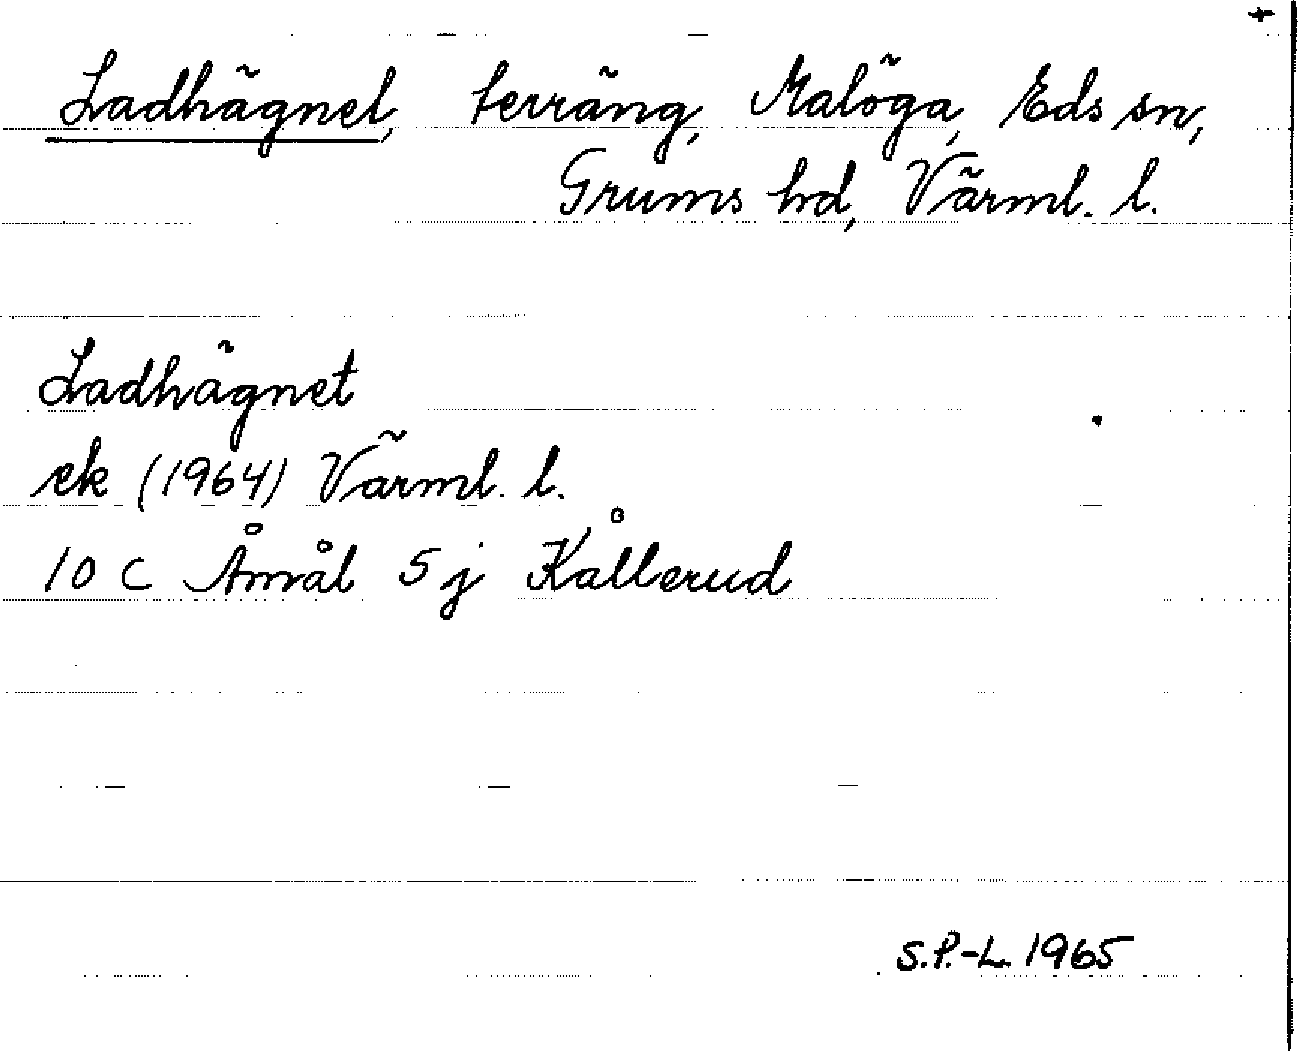 +
Ladhägnet, terräng, Malöga, Eds sn,
Grums hd, Värml. l.
Ladhägnet
ek (1964) Värml. l.
10 C Åmål 5 j Kållerud
S.P.-L. 1965